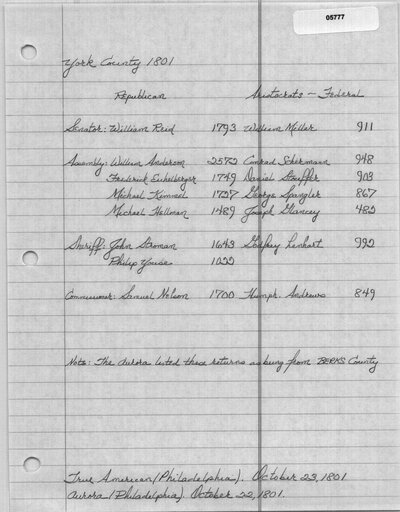 05777
York County 1801
Republican Aristocrats - Federal
Senator: William Reid 1793 William Mellar 911
Assembly: William Anderson 2572 Conrad Sherman 948
Frederick Eichelberger 1749 Daniel Stouffer 903
Michael Kimmel 1737 George Spangler 867
Michael Hellman 1489 Joseph Glancey 482
Sheriff: John Stroman 1643 Godfrey Lenhart 992
Philip Youse 1022
Commissioner: Samuel Nelson 1700 Humph. Andrews 849
Note: The Aurora listed these returns as being from BERKS County
True American (Philadelphia). October 23, 1801
Aurora (Philadelphia). October 22, 1801.